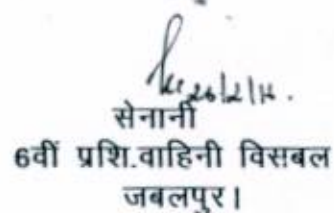 26/2/16.
सेनानी
6वीं प्रशि.वाहिनी विसबल
जबलपुर।